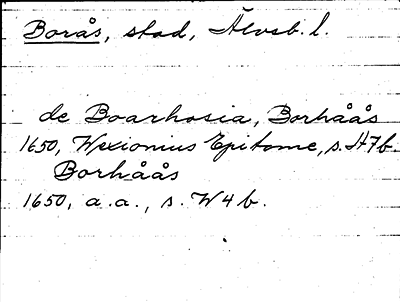 Borås, stad, Älvsb. l.
de Boarhosia, Borhåås
1650, Wexionius Epitome, s. H7b.
Borhåås
1650, a.a., s. W4b.